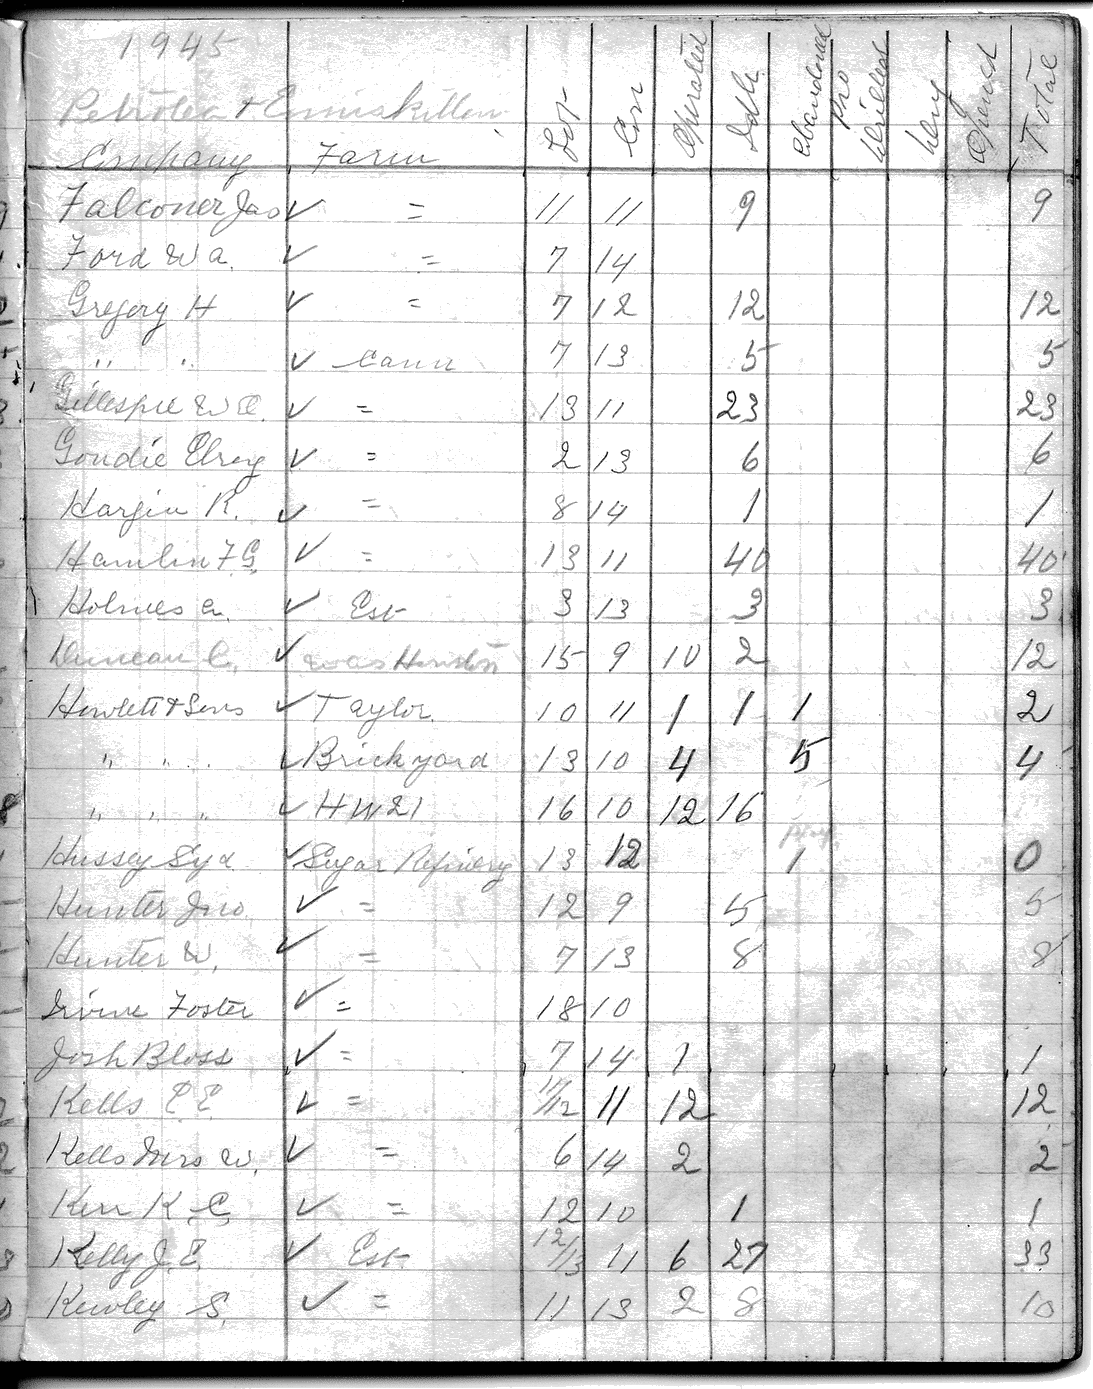 1945
Petrolea & Enniskillen
Company Farm Lot Con Operated Idle Abandoned Pro Drilled Dry Opened Total
Falconer Jas ✓ = 11 11 9 9
Ford W a. ✓ = 7 14
Gregory H ✓ = 7 12 12 12
" " ✓ Cann 7 13 5 5
Gillespie W. ✓ = 13 11 23 23
Goudie Elroy ✓ = 2 13 6 6
Hargin R. ✓ = 8 14 1 1
Hamlin F G. ✓ = 13 11 40 40
Holmes a. ✓ Est 3 13 3 3
Duncan C. ✓ was Houston 15 9 10 2 12
Howlett & Sons ✓ Taylor. 10 11 1 1 1 2
" " ✓ Brickyard 13 10 4 5 4
" " " ✓ H W 21 16 10 12 16
Hussey Syd ✓ Sugar Refinery 13 12 1 0
Hunter Jno. ✓ = 12 9 5 5
Hunter W. ✓ = 7 13 8 8
Irvine Foster ✓ = 18 10
Josh Bloss ✓ = 7 14 1 1
Kells E E. ✓ = 11/12 11 12 12
Kells Mrs W. ✓ = 6 14 2 2
Kerr K C. ✓ = 12 10 1 1
Kelly J. E. ✓ Est. 12/13 11 6 27 33
Kewley S. ✓ = 11 13 2 8 10